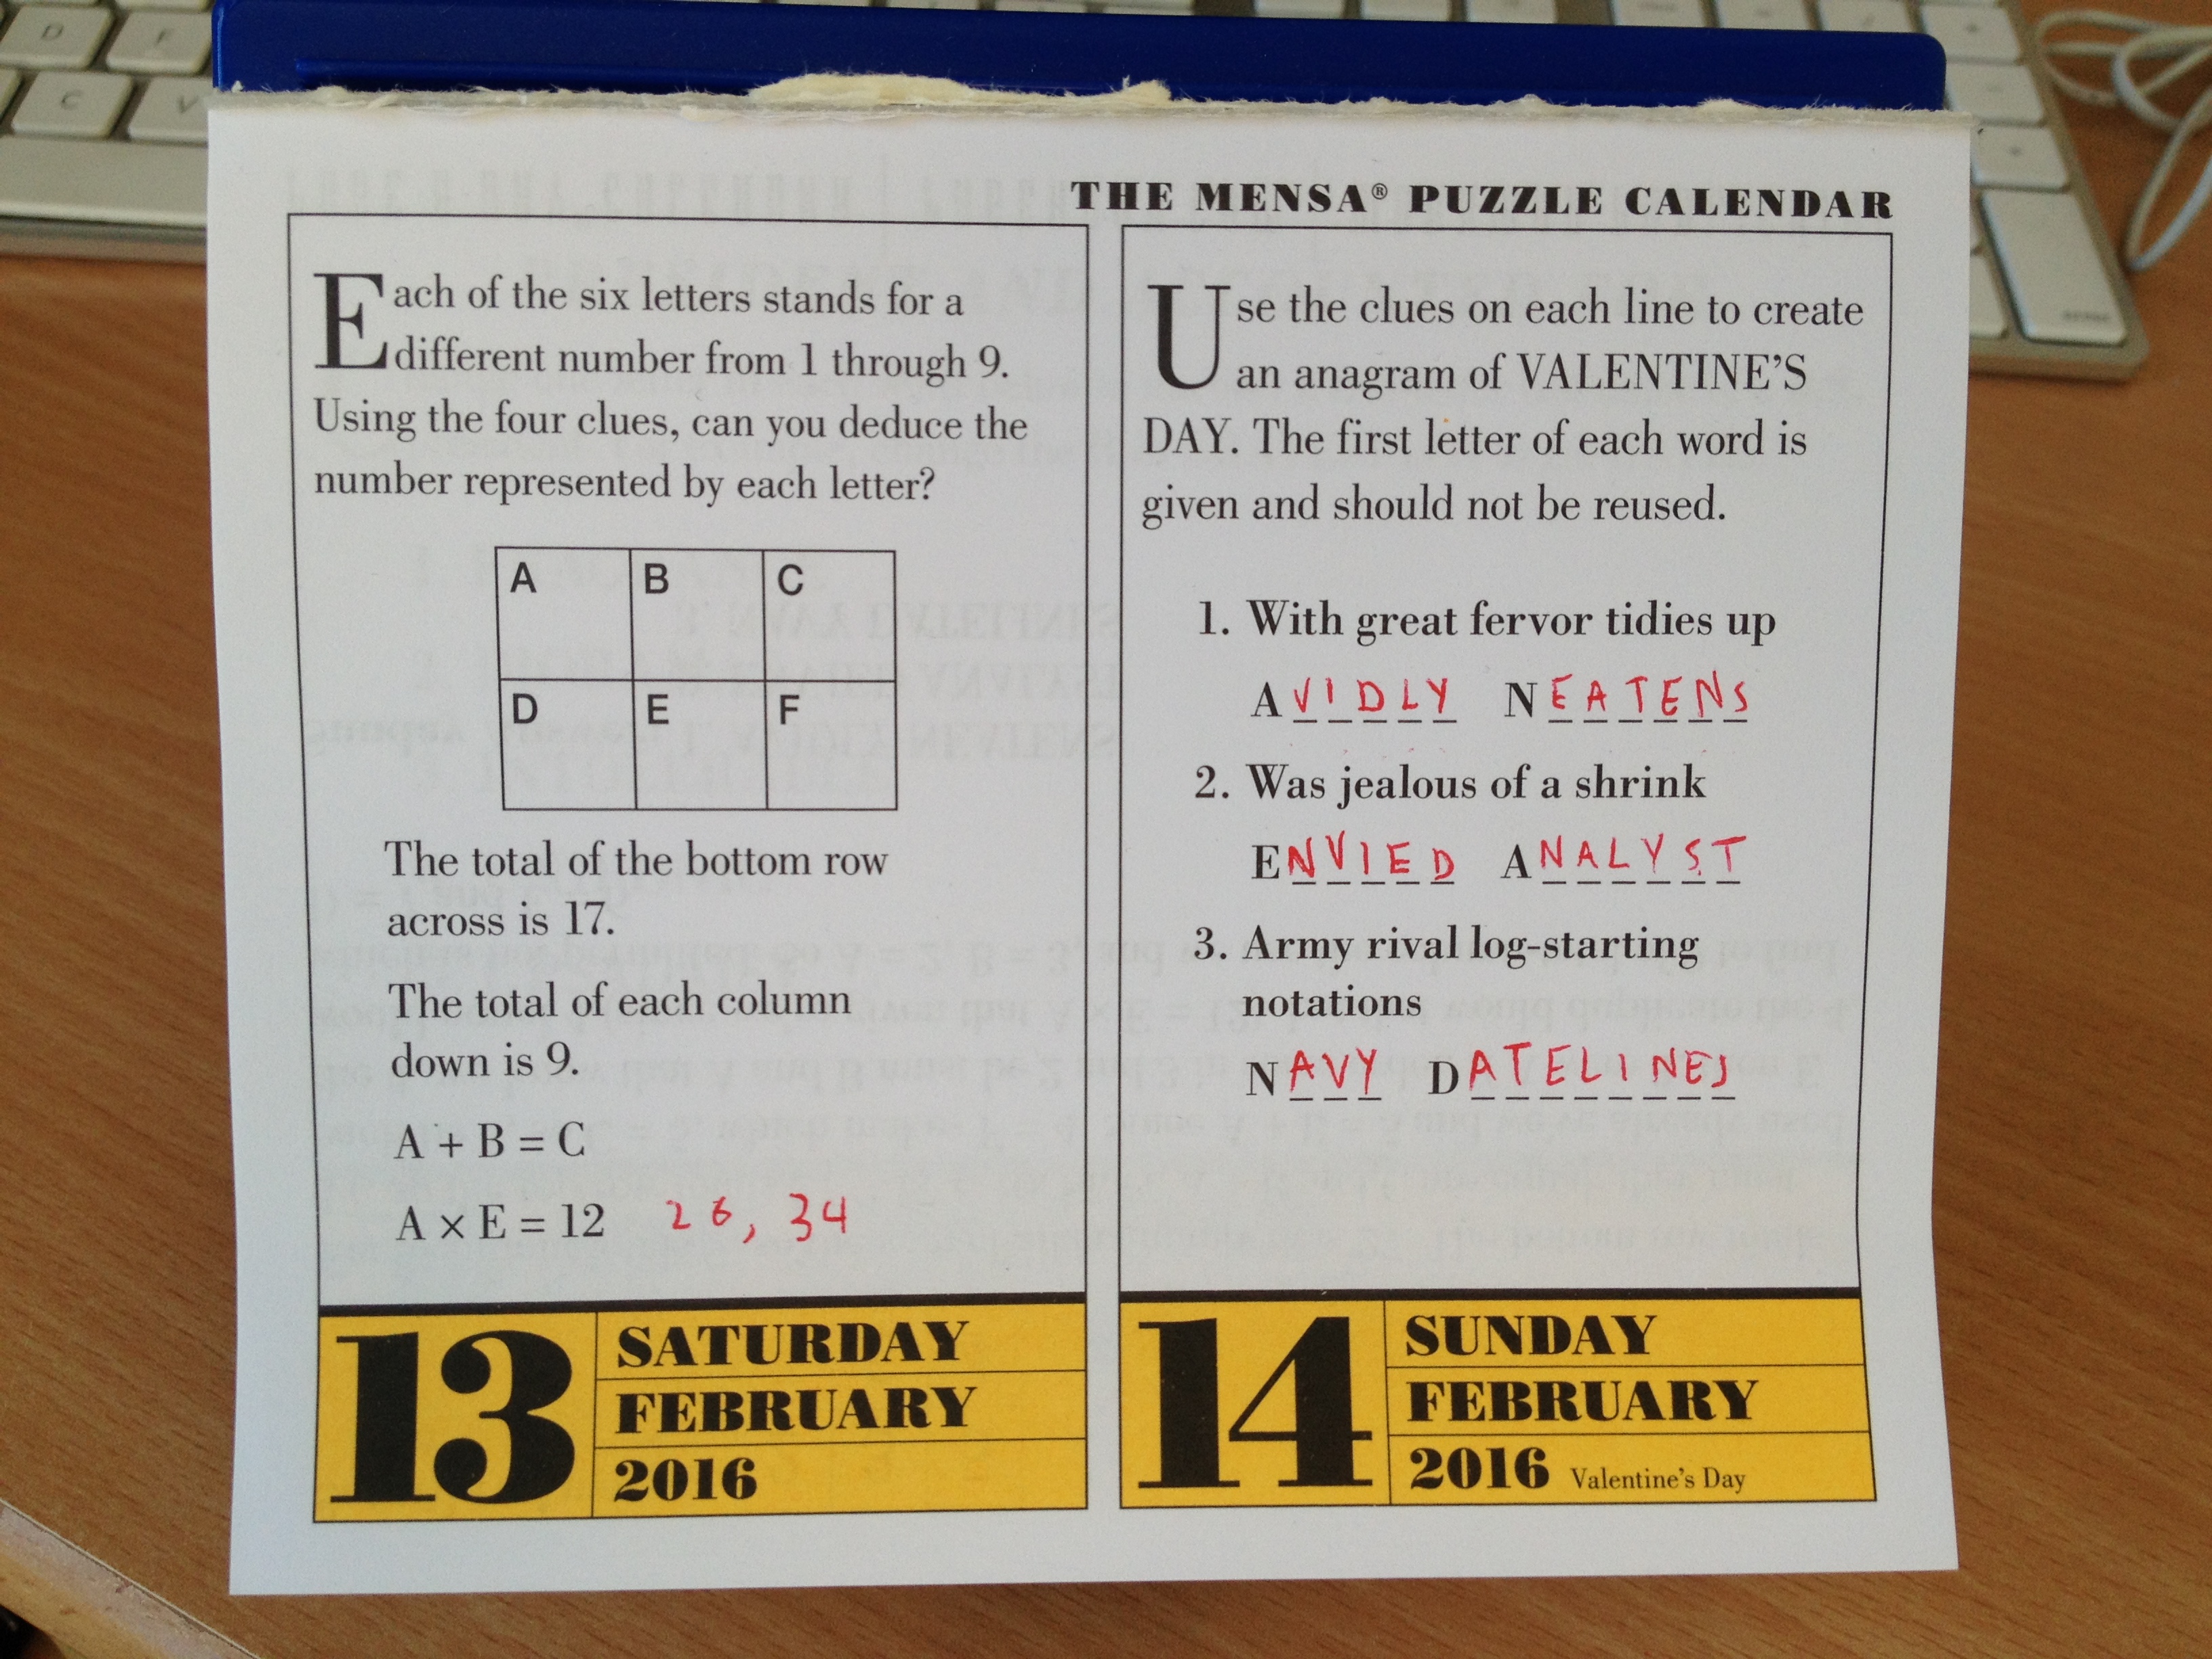 THE MENSA® PUZZLE CALENDAR
Each of the six letters stands for a
different number from 1 through 9.
Using the four clues, can you deduce the
number represented by each letter?
A B C
D E F
The total of the bottom row
across is 17.
The total of each column
down is 9.
A + B = C
A × E = 12 26, 34
13 SATURDAY
FEBRUARY
2016
Use the clues on each line to create
an anagram of VALENTINE'S
DAY. The first letter of each word is
given and should not be reused.
1. With great fervor tidies up
AVIDLY NEATENS
2. Was jealous of a shrink
ENVIED ANALYST
3. Army rival log-starting
notations
NAVY DATELINES
14 SUNDAY
FEBRUARY
2016 Valentine's Day
D F
C V